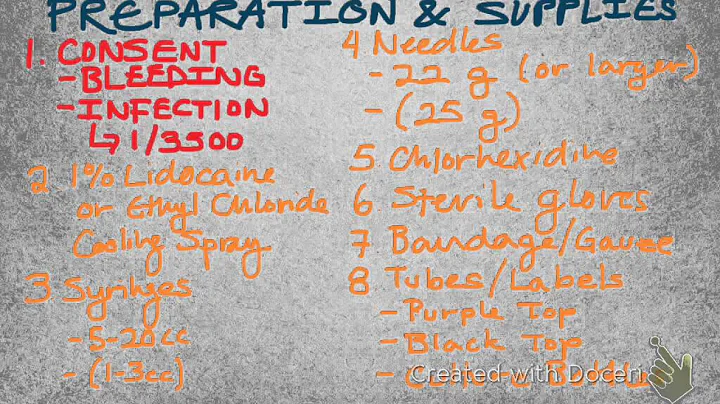 PREPARATION & SUPPLIES
1. CONSENT
- BLEEDING
- INFECTION
↳ 1/3500
2 1% Lidocaine
or Ethyl Chloride
Cooling Spray
3 Syringes
- 5-20cc
- (1-3cc)
4 Needles
- 22 g (or larger)
- (25 g)
5 Chlorhexidine
6 Sterile gloves
7 Bandage/Gauze
8 Tubes/Labels
- Purple Top
- Black Top
- Culture Bottles
Created with Doceri